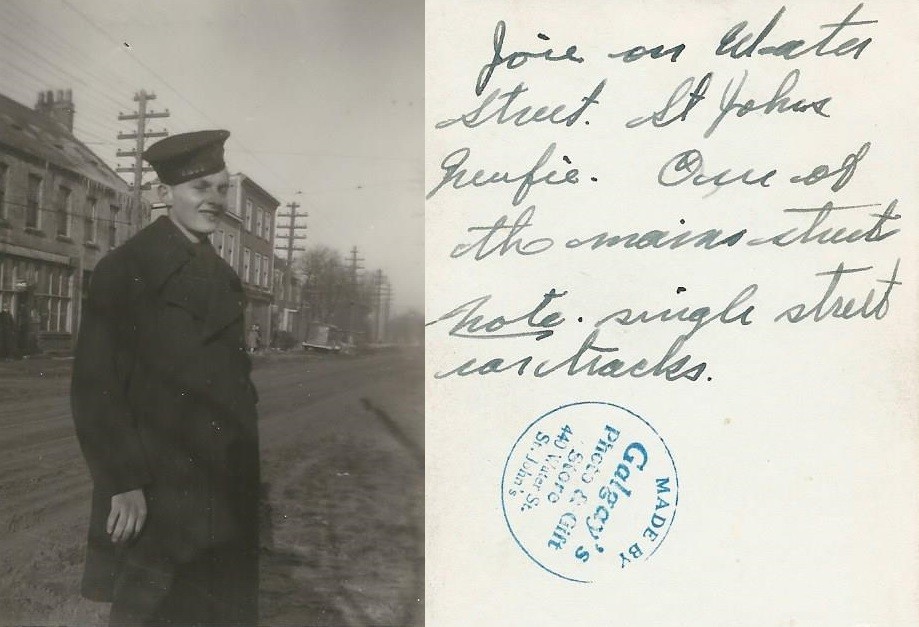 Joie on Water
Street. St Johns
Newfie. One of
the mains streets
Note. single street
car tracks.
MADE BY
Galgay's
Photo & Gift
Store
440 Water St.
St. John's